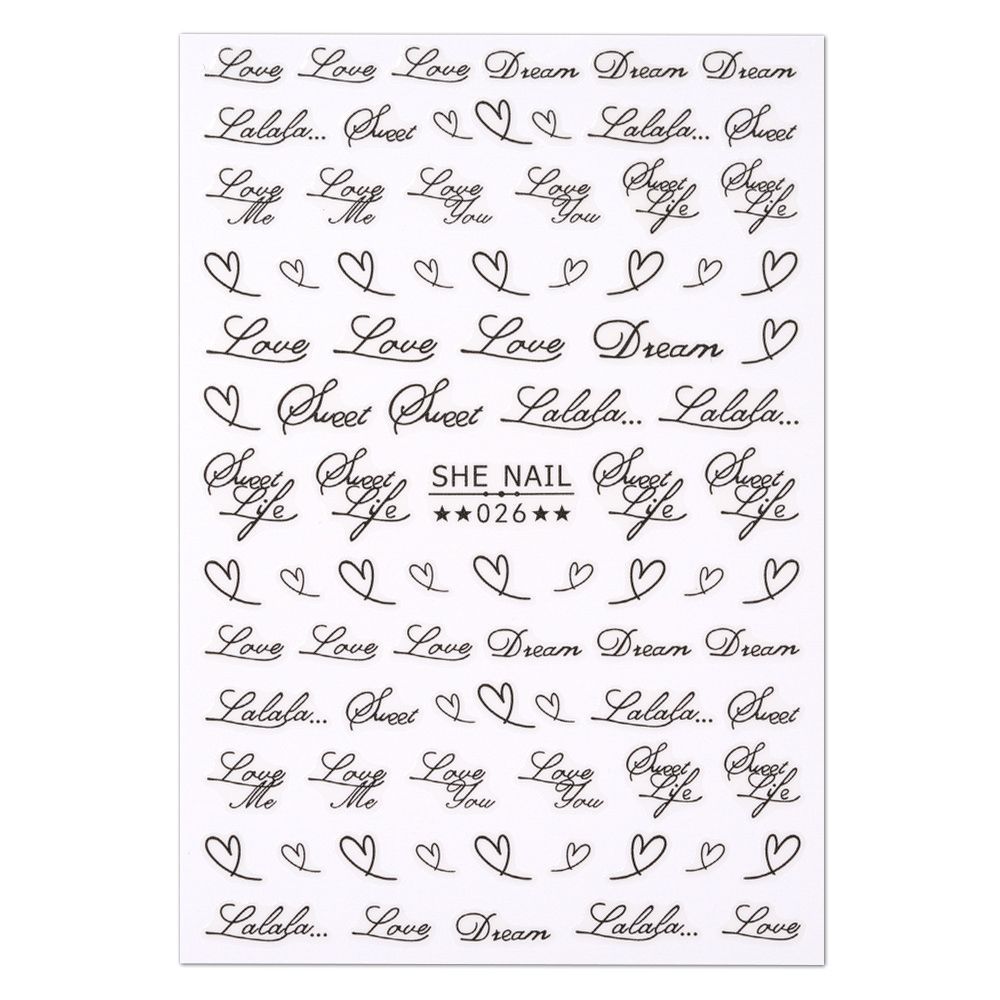 Love Love Love Dream Dream Dream
Lalala... Sweet Lalala... Sweet
Love Love Love Love Sweet Sweet
Me Me You You Life Life
Love Love Love Dream
Sweet Sweet Lalala... Lalala...
Sweet Sweet SHE NAIL Sweet Sweet
Life Life ★★026★★ Life Life
Love Love Love Dream Dream Dream
Lalala... Sweet Lalala... Sweet
Love Love Love Love Sweet Sweet
Me Me You You Life Life
Lalala... Love Dream Lalala... Love